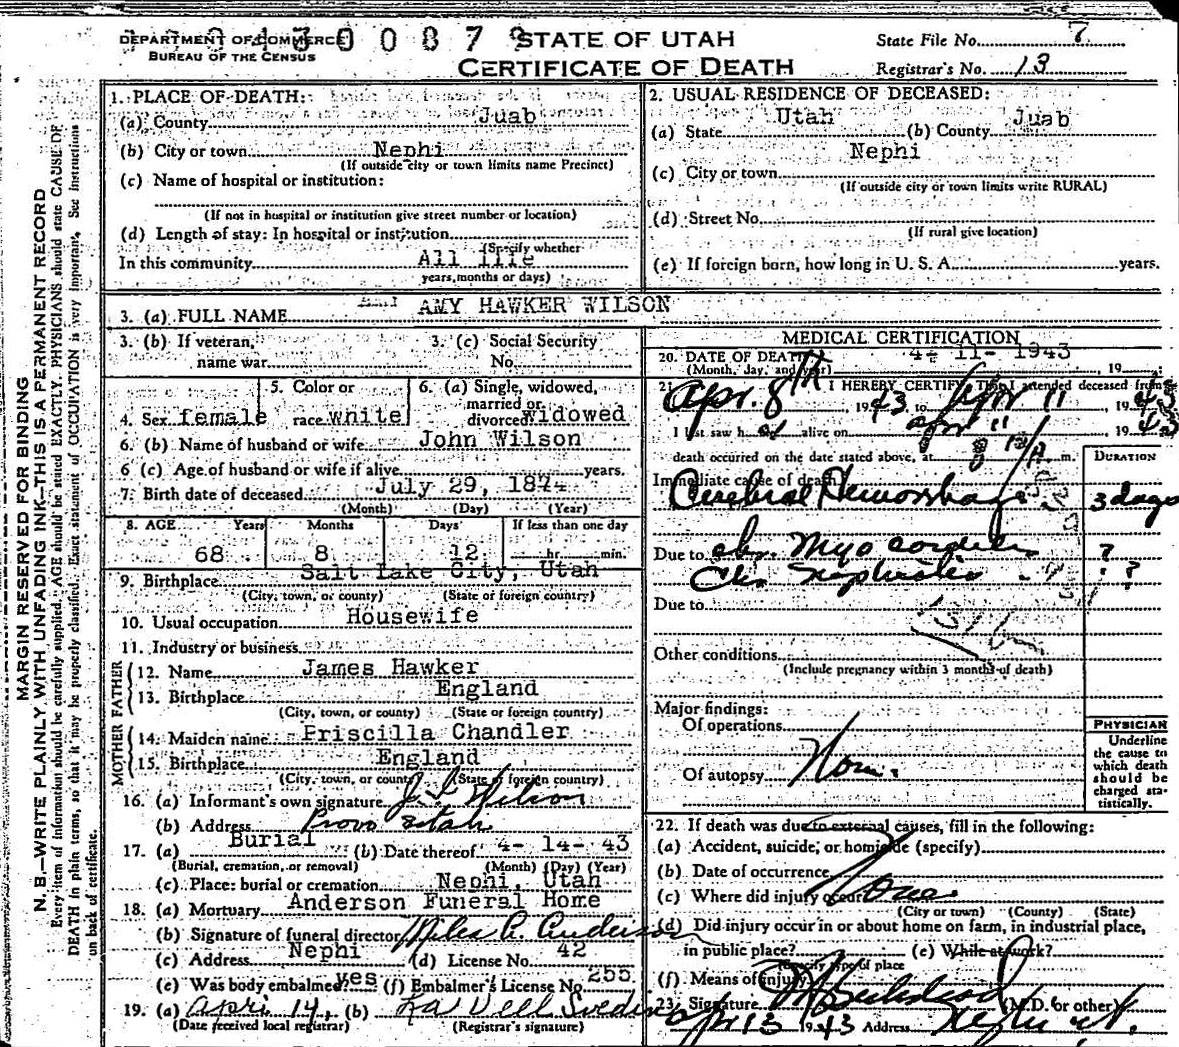 DEPARTMENT OF COMMERCE
BUREAU OF THE CENSUS
STATE OF UTAH
CERTIFICATE OF DEATH
State File No. 7
Registrar's No. 13
MARGIN RESERVED FOR BINDING
N. B.—WRITE PLAINLY, WITH UNFADING INK—THIS IS A PERMANENT RECORD
Every item of information should be carefully supplied. AGE should be stated EXACTLY. PHYSICIANS should state CAUSE OF
DEATH in plain terms, so that it may be properly classified. Exact statement of OCCUPATION is very important. See instructions
on back of certificate.
1. PLACE OF DEATH:
(a) County Juab
(b) City or town Nephi
(If outside city or town limits name Precinct)
(c) Name of hospital or institution:
(If not in hospital or institution give street number or location)
(d) Length of stay: In hospital or institution
(Specify whether
In this community All life
years, months or days)
2. USUAL RESIDENCE OF DECEASED:
(a) State Utah (b) County Juab
Nephi
(c) City or town
(If outside city or town limits write RURAL)
(d) Street No.
(If rural give location)
(e) If foreign born, how long in U. S. A. years.
3. (a) FULL NAME AMY HAWKER WILSON
3. (b) If veteran, name war
3. (c) Social Security No.
4. Sex female
5. Color or race white
6. (a) Single, widowed, married or divorced widowed
6. (b) Name of husband or wife John Wilson
6 (c) Age of husband or wife if alive years.
7. Birth date of deceased July 29, 1874
(Month) (Day) (Year)
8. AGE Years Months Days If less than one day
68 8 12 hr. min.
9. Birthplace Salt Lake City, Utah
(City, town, or county) (State of foreign country)
10. Usual occupation Housewife
11. Industry or business
FATHER
12. Name James Hawker
13. Birthplace England
(City, town, or county) (State or foreign country)
MOTHER
14. Maiden name Priscilla Chandler
15. Birthplace England
(City, town, or county) (State of foreign country)
16. (a) Informant's own signature Wilson
(b) Address Provo Utah
17. (a) Burial (b) Date thereof 4- 14- 43
(Burial, cremation, or removal) (Month) (Day) (Year)
(c) Place: burial or cremation Nephi, Utah
18. (a) Mortuary Anderson Funeral Home
(b) Signature of funeral director Miles A. Anderson
(c) Address Nephi (d) License No. 42
(e) Was body embalmed? yes (f) Embalmer's License No. 255
19. (a) April 14, (b) La Vell
(Date received local registrar) (Registrar's signature)
MEDICAL CERTIFICATION
20. DATE OF DEATH 4- 11- 1943
(Month, day, and year) , 19
21. I HEREBY CERTIFY That I attended deceased from
Apr. 8th, 1943 to Apr 11, 1943
I last saw h er alive on Apr 11, 1943
death occurred on the date stated above, at m.
DURATION
Immediate cause of death
Cerebral Hemorrhage 3 days
Due to chr. Myocarditis ?
Chr Nephritis ?
Due to
Other conditions
(Include pregnancy within 3 months of death)
Major findings:
Of operations
Of autopsy None.
PHYSICIAN
Underline
the cause to
which death
should be
charged sta-
tistically.
22. If death was due to external causes, fill in the following:
(a) Accident, suicide, or homicide (specify)
(b) Date of occurrence
(c) Where did injury occur?
(City or town) (County) (State)
(d) Did injury occur in or about home on farm, in industrial place,
in public place? (e) While at work?
(Specify type of place
(f) Means of injury
23. Signature (M.D. or other)
Apr 13 1943 Address Nephi